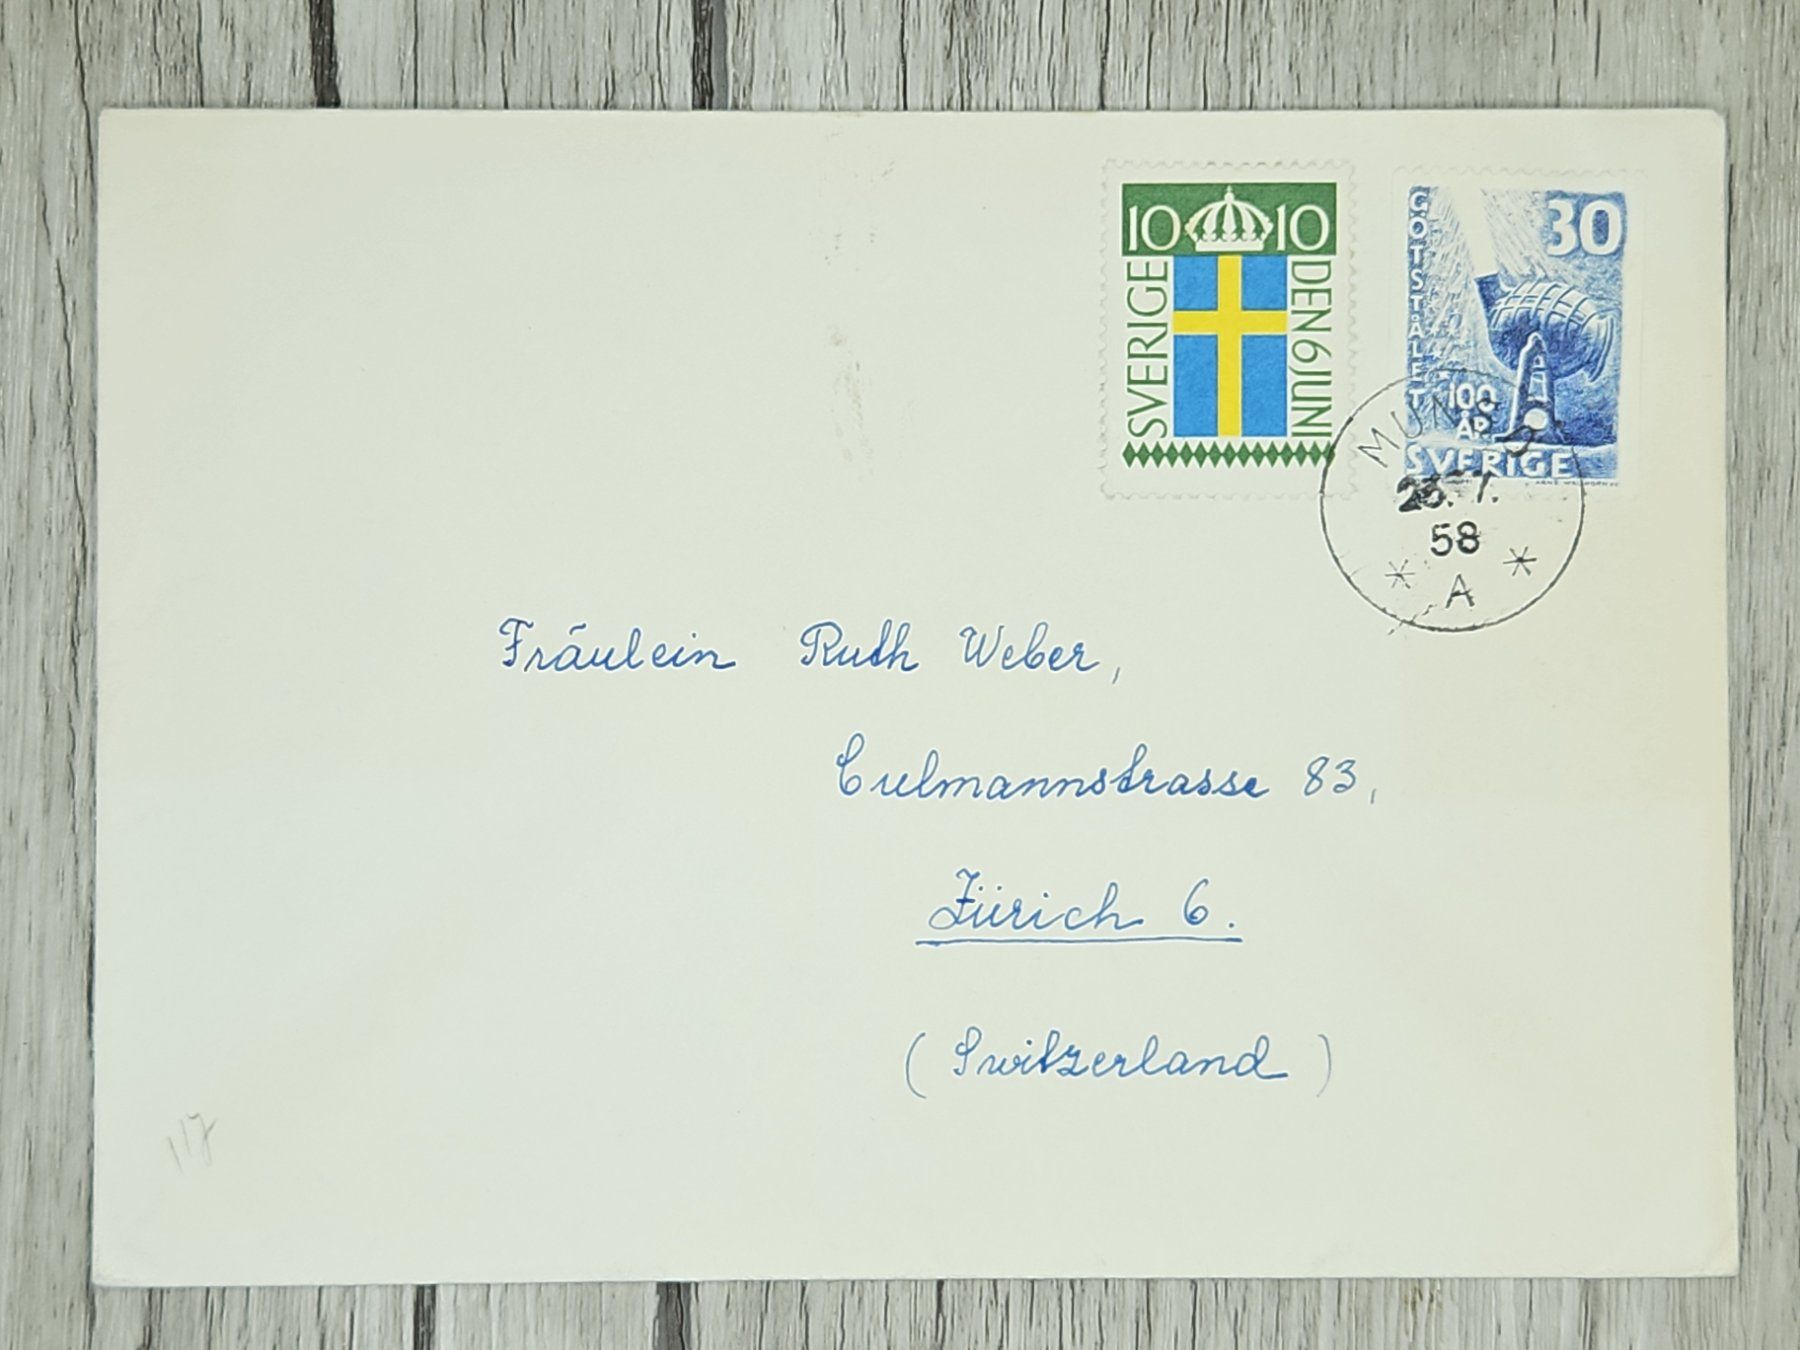 10 10
SVERIGE
DEN 6 JUNI
30
GÖTSTÅLET
100
ÅR
SVERIGE
MUNSÖ
58
* A *
Fräulein Ruth Weber,
Culmannstrasse 83,
Zürich 6.
(Switzerland)
117